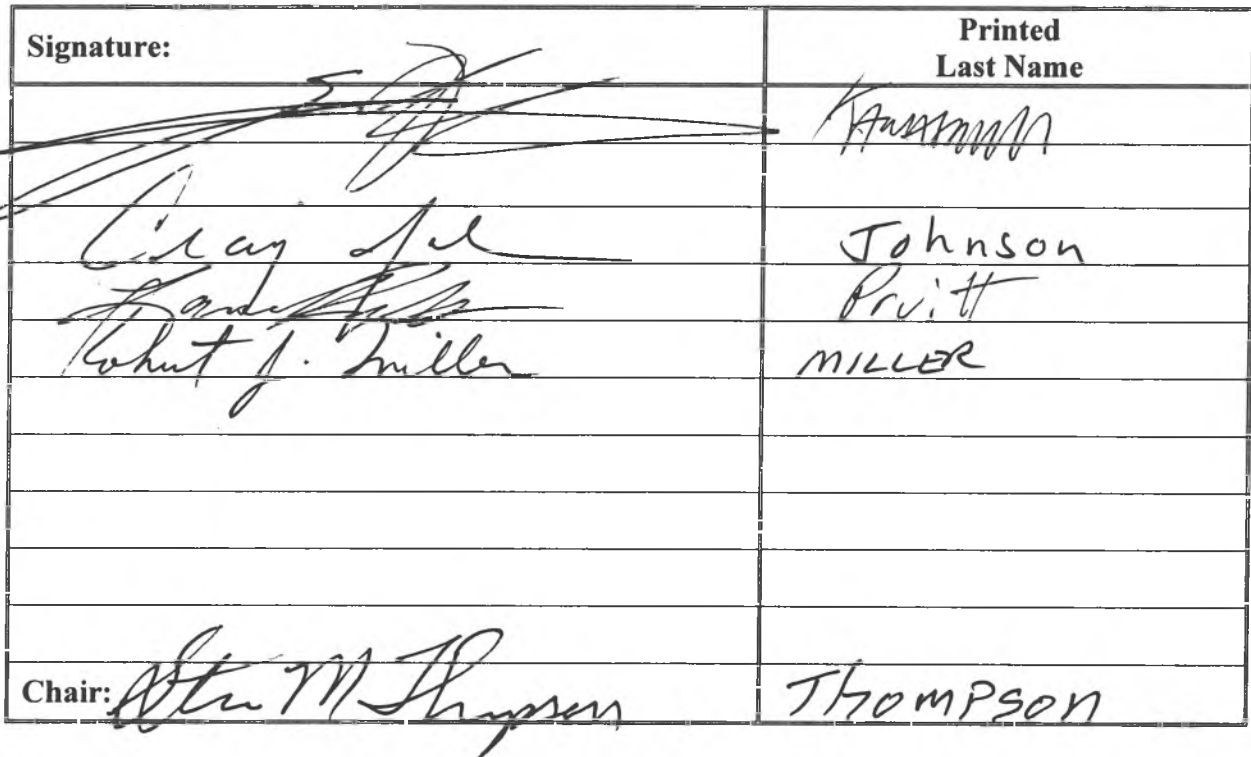 Signature: Printed
Last Name
Craig Johnson
Pruitt
Robert J. Miller MILLER
Chair: M Thompson Thompson